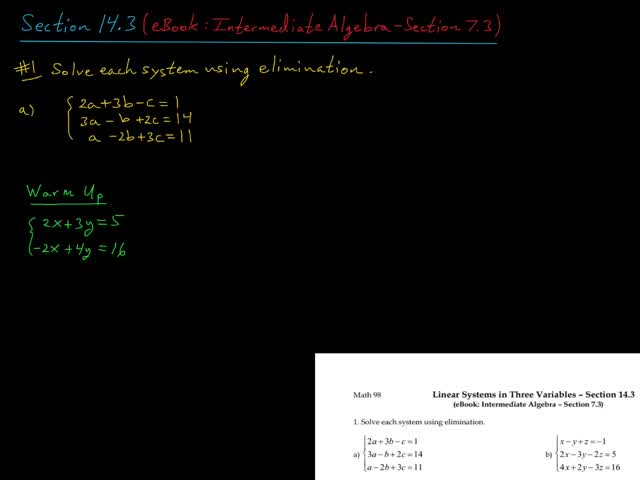 Section 14.3 (eBook: Intermediate Algebra - Section 7.3)
#1 Solve each system using elimination.
a) { 2a+3b-c=1
3a-b+2c=14
a-2b+3c=11
Warm Up
{ 2x+3y=5
-2x+4y=16
Math 98 Linear Systems in Three Variables – Section 14.3
(eBook: Intermediate Algebra – Section 7.3)
1. Solve each system using elimination.
a) { 2a+3b-c=1
3a-b+2c=14
a-2b+3c=11
b) { x-y+z=-1
2x-3y-2z=5
4x+2y-3z=16